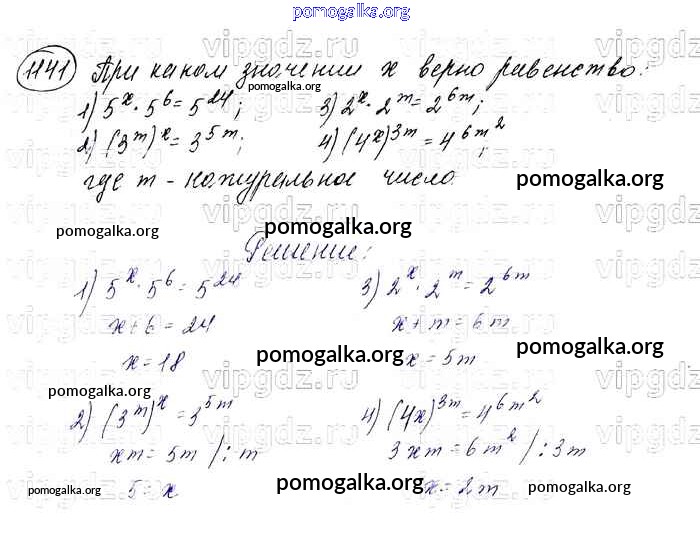 pomogalka.org
1141 При каком значении x верно равенство:
pomogalka.org
1) 5^x · 5^6 = 5^24; 3) 2^x · 2^m = 2^6m;
2) (3^m)^x = 3^5m; 4) (4^x)^3m = 4^6m^2;
где m - натуральное число.
pomogalka.org
pomogalka.org
pomogalka.org
Решение:
1) 5^x · 5^6 = 5^24 3) 2^x · 2^m = 2^6m
x + 6 = 24 x + m = 6m
x = 18 x = 5m
pomogalka.org
pomogalka.org
pomogalka.org
2) (3^m)^x = 3^5m 4) (4x)^3m = 4^6m^2
xm = 5m /: m 3xm = 6m^2 /: 3m
5 = x x = 2m
pomogalka.org
pomogalka.org
pomogalka.org
vipgdz.ru